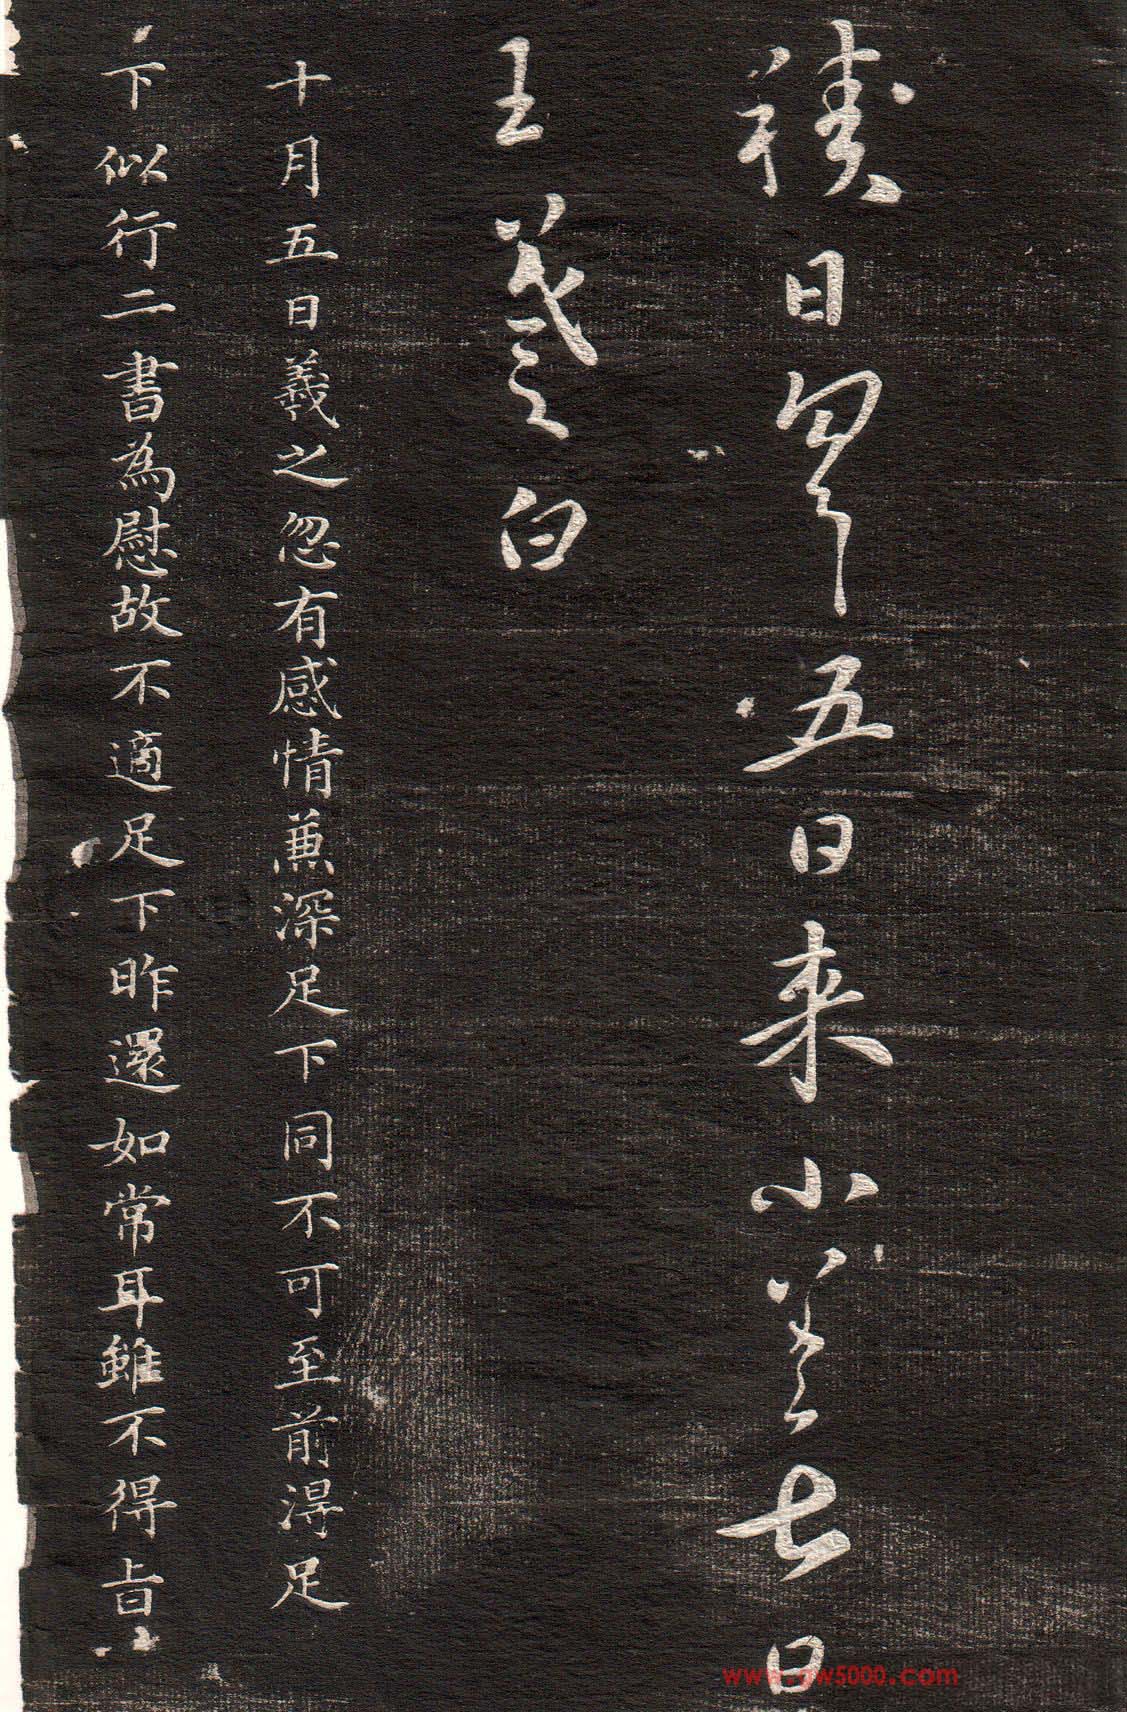 袜日匆匆五日来小差七日
王羲之白
十月五日羲之忽有感情兼深足下同不可至前淂足
下似行二書為慰故不適足下昨還如常耳雖不得旨
www.gw5000.com